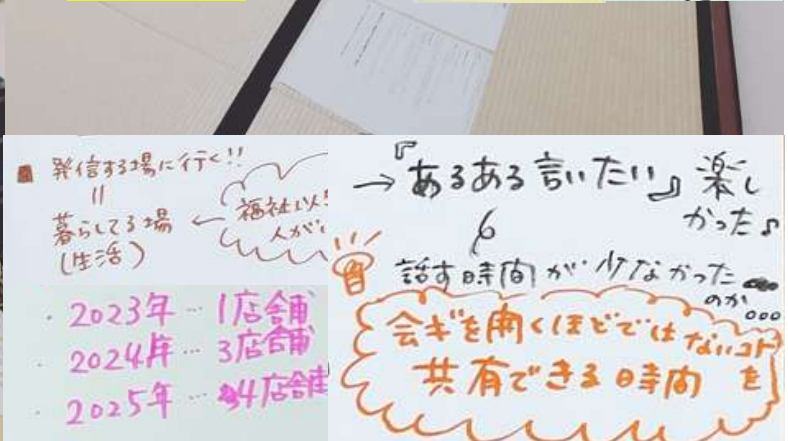 発信する場に行く!!
||
暮らしてる場 ←
(生活)
福祉以
人が
・2023年…1店舗
・2024年…3店舗
・2025年…4店舗
→『あるある言いたい』楽し
かった♪
話す時間が少なかった
のか...
会ギを開くほどではないコト
共有できる時間を